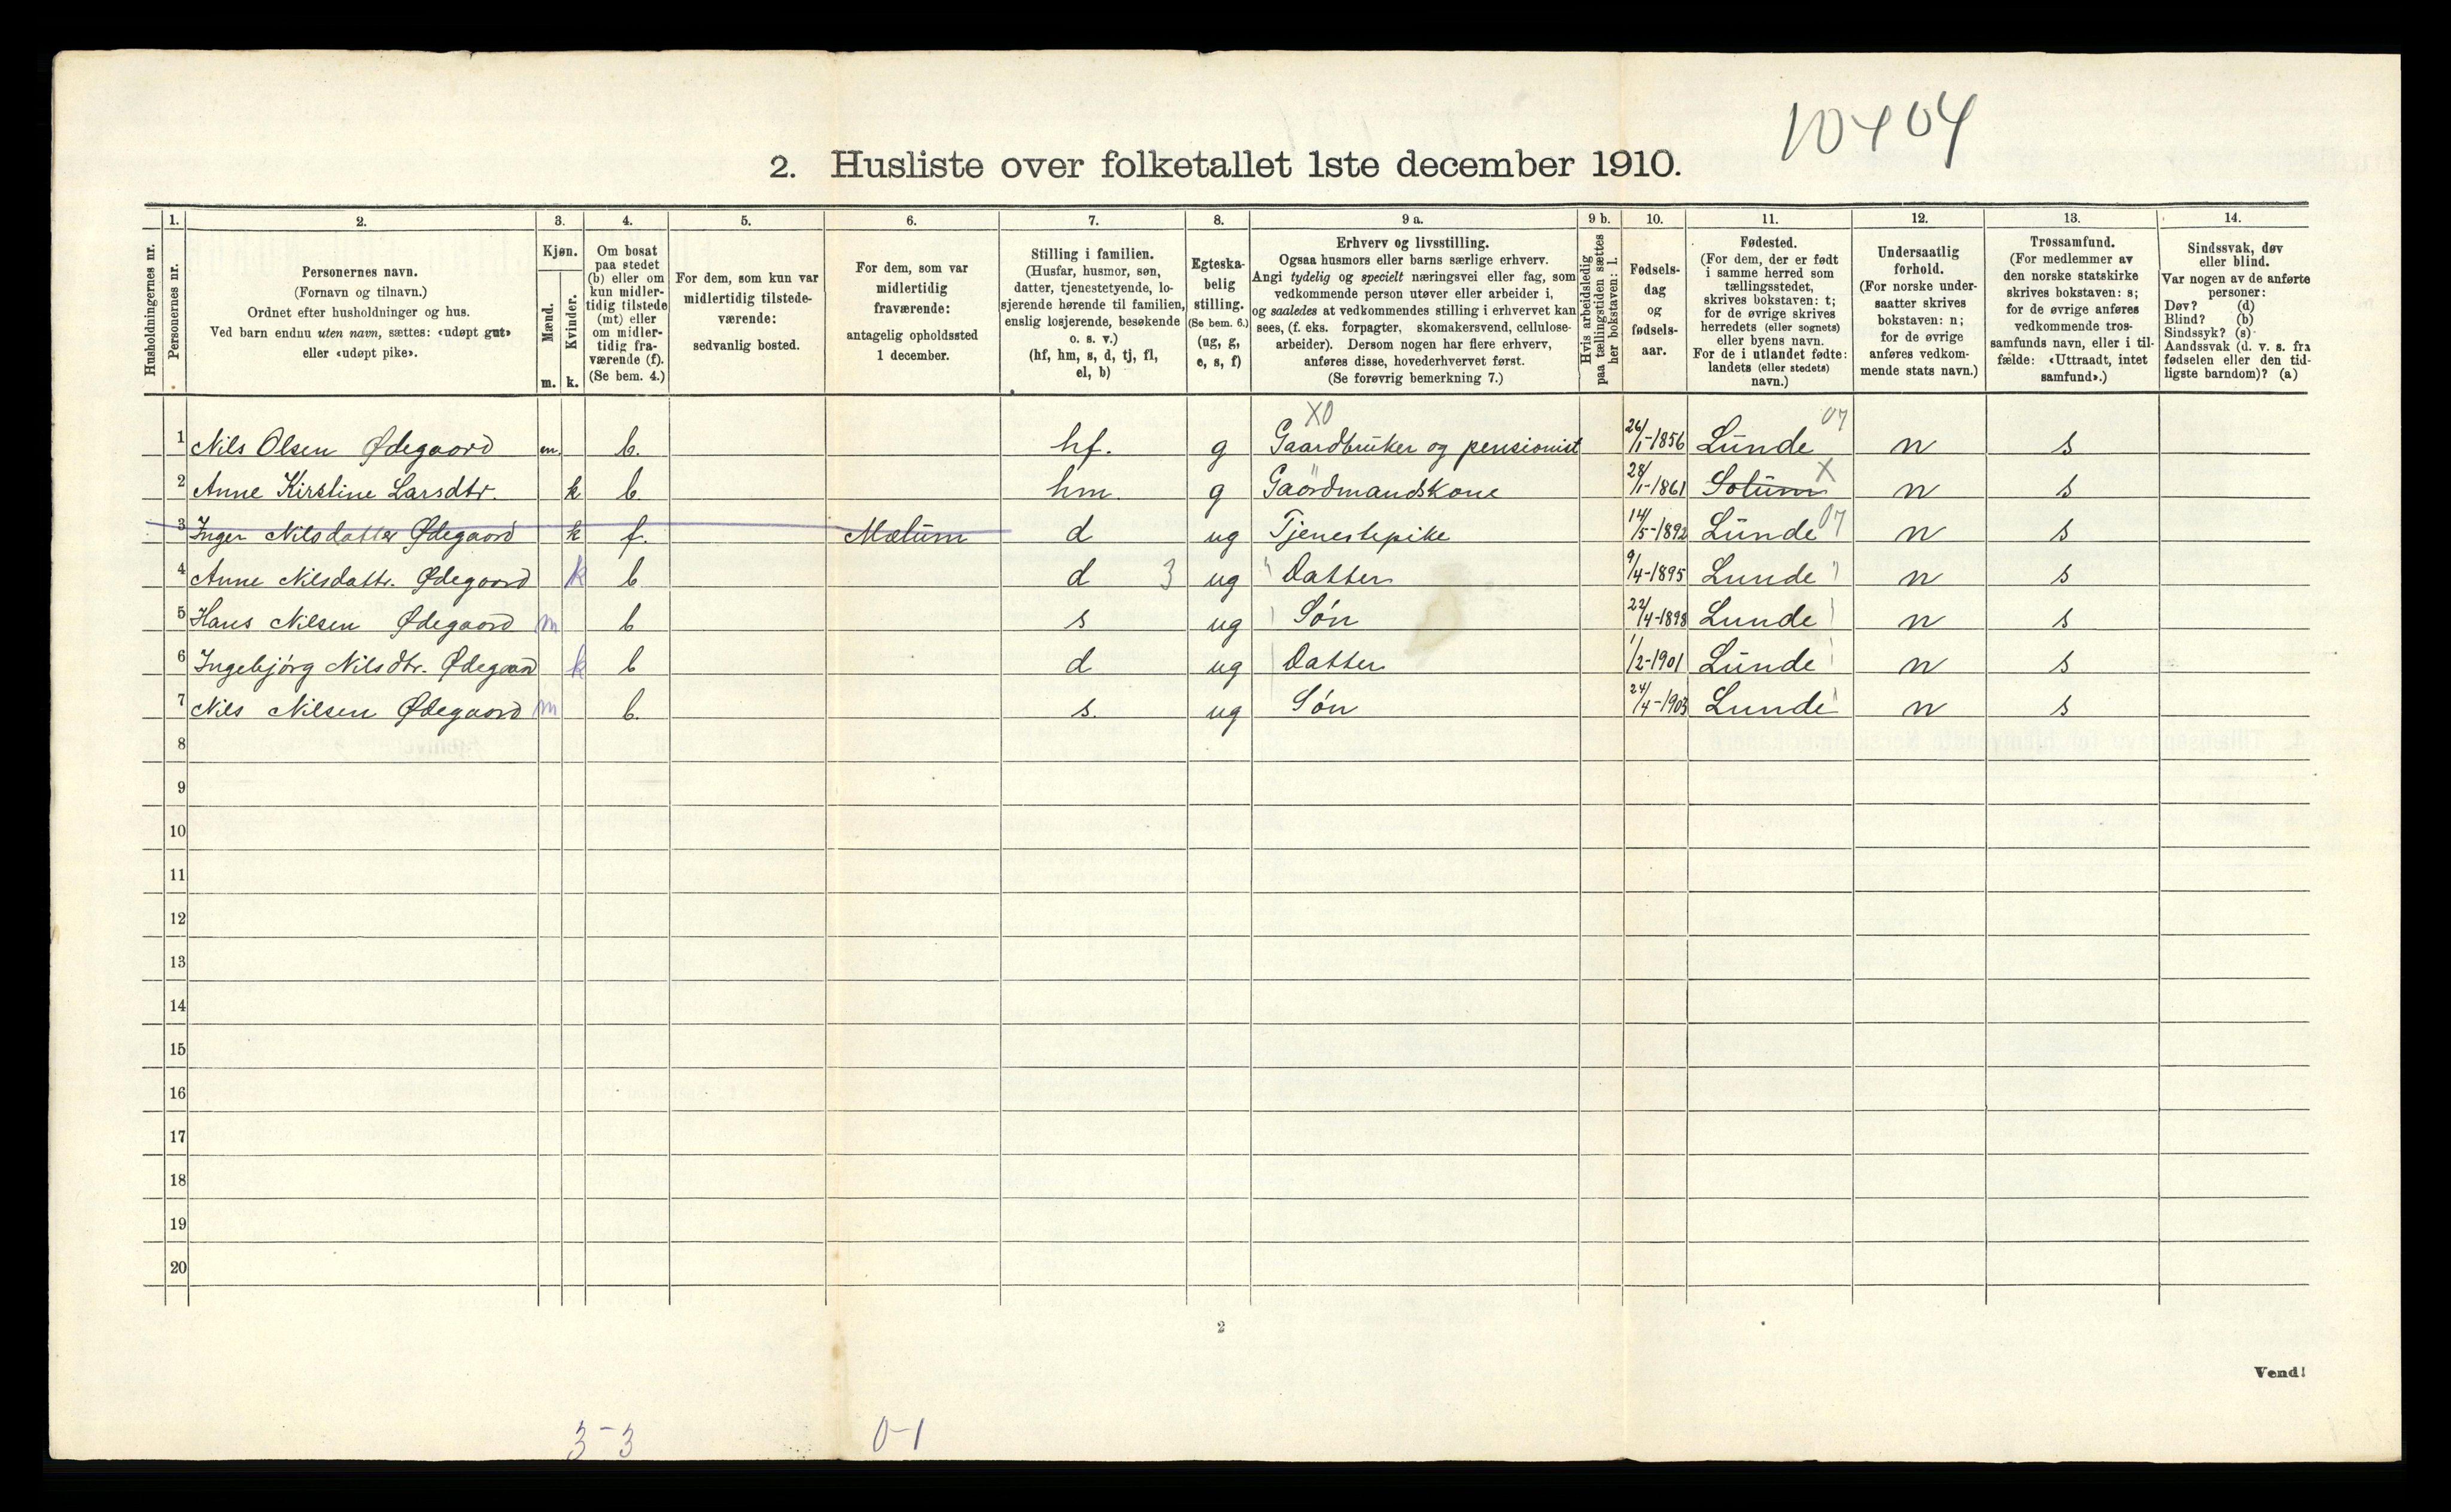 10404
2. Husliste over folketallet 1ste december 1910.
Husholdningernes nr.
1. 2. 3. 4. 5. 6. 7. 8. 9 a. 9 b. 10. 11. 12. 13. 14.
Personernes nr.
Personernes navn.
(Fornavn og tilnavn.)
Ordnet efter husholdninger og hus.
Ved barn endnu uten navn, sættes: «udøpt gut»
eller «udøpt pike».
Kjøn.
Mænd.
Kvinder.
m. k.
Om bosat
paa stedet
(b) eller om
kun midler-
tidig tilstede
(mt) eller
om midler-
tidig fra-
værende (f).
(Se bem. 4.)
For dem, som kun var
midlertidig tilstede-
værende:
sedvanlig bosted.
For dem, som var
midlertidig
fraværende:
antagelig opholdssted
1 december.
Stilling i familien.
(Husfar, husmor, søn,
datter, tjenestetyende, lo-
sjerende hørende til familien,
enslig losjerende, besøkende
o. s. v.)
(hf, hm, s, d, tj, fl,
el, b)
Egteska-
belig
stilling.
(Se bem. 6.)
(ug, g,
e, s, f)
Erhverv og livsstilling.
Ogsaa husmors eller barns særlige erhverv.
Angi tydelig og specielt næringsvei eller fag, som
vedkommende person utøver eller arbeider i,
og saaledes at vedkommendes stilling i erhvervet kan
sees, (f. eks. forpagter, skomakersvend, cellulose-
arbeider). Dersom nogen har flere erhverv,
anføres disse, hovederhvervet først.
(Se forøvrig bemerkning 7.)
Hvis arbeidsledig
paa tællingstiden sættes
her bokstaven: l.
Fødsels-
dag
og
fødsels-
aar.
Fødested.
(For dem, der er født
i samme herred som
tællingsstedet,
skrives bokstaven: t;
for de øvrige skrives
herredets (eller sognets)
eller byens navn.
For de i utlandet fødte:
landets (eller stedets)
navn.)
Undersaatlig
forhold.
(For norske under-
saatter skrives
bokstaven: n;
for de øvrige
anføres vedkom-
mende stats navn.)
Trossamfund.
(For medlemmer av
den norske statskirke
skrives bokstaven: s;
for de øvrige anføres
vedkommende tros-
samfunds navn, eller i til-
fælde: «Uttraadt, intet
samfund».)
Sindssvak, døv
eller blind.
Var nogen av de anførte
personer:
Døv? (d)
Blind? (b)
Sindssyk? (s)
Aandssvak (d. v. s. fra
fødselen eller den tid-
ligste barndom)? (a)
X0 07
1 Nils Olsen Ødegaard m. b. hf. g Gaardbruker og pensionist 26/1-1856 Lunde n s
2 Anne Kirstine Larsdtr. k b hm. g Gaardmandskone 28/1-1861 Solum X n s
3 Inger Nilsdatter Ødegaard k f. Mælum d ug Tjenestepike 14/5-1892 Lunde 07 n s
4 Anne Nilsdattr. Ødegaard k b d 3 ug " Datter 9/4-1895 Lunde n s
5 Hans Nilsen Ødegaard m b s ug Søn 22/4-1898 Lunde n s
6 Ingebjørg Nilsdtr. Ødegaard k b d ug Datter 1/2-1901 Lunde n s
7 Nils Nilsen Ødegaard m b. s. ug Søn 24/4-1903 Lunde n s
8
9
10
11
12
13
14
15
16
17
18
19
20
2
Vend!
3-3 0-1